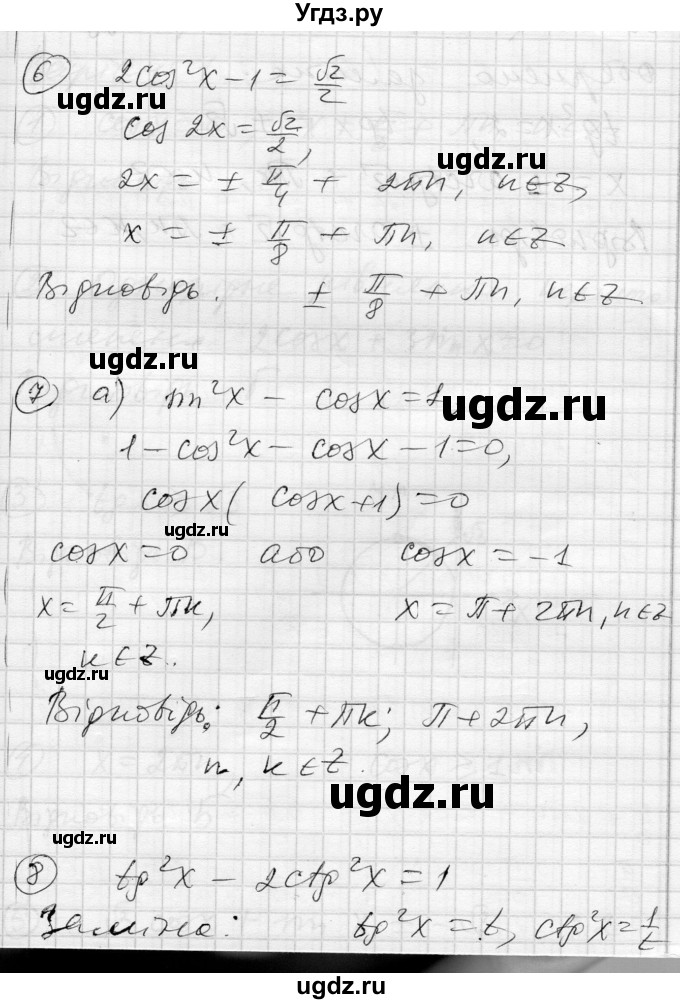 Угдз.ру
6 2cos²x - 1 = √2/2
ugdz.ru
cos 2x = √2/2,
ugdz.ru
2x = ± π/4 + 2πn, n∈Z,
x = ± π/8 + πn, n∈Z
Відповідь. ± π/8 + πn, n∈Z
ugdz.ru
7 а) sin²x - cosx = 1
ugdz.ru
1 - cos²x - cosx - 1 = 0,
cosx ( cosx+1) = 0
ugdz.ru
cosx = 0 або cosx = -1
x = π/2 + πk, x = π + 2πn, n∈Z
ugdz.ru
k∈Z.
Відповідь: π/2 + πk; π + 2πn,
n, k∈Z.
ugdz.ru
ugdz.ru
8 tg²x - 2ctg²x = 1
Заміна: tg²x = t, ctg²x = 1/t
ugdz.ru
Угдз.ру